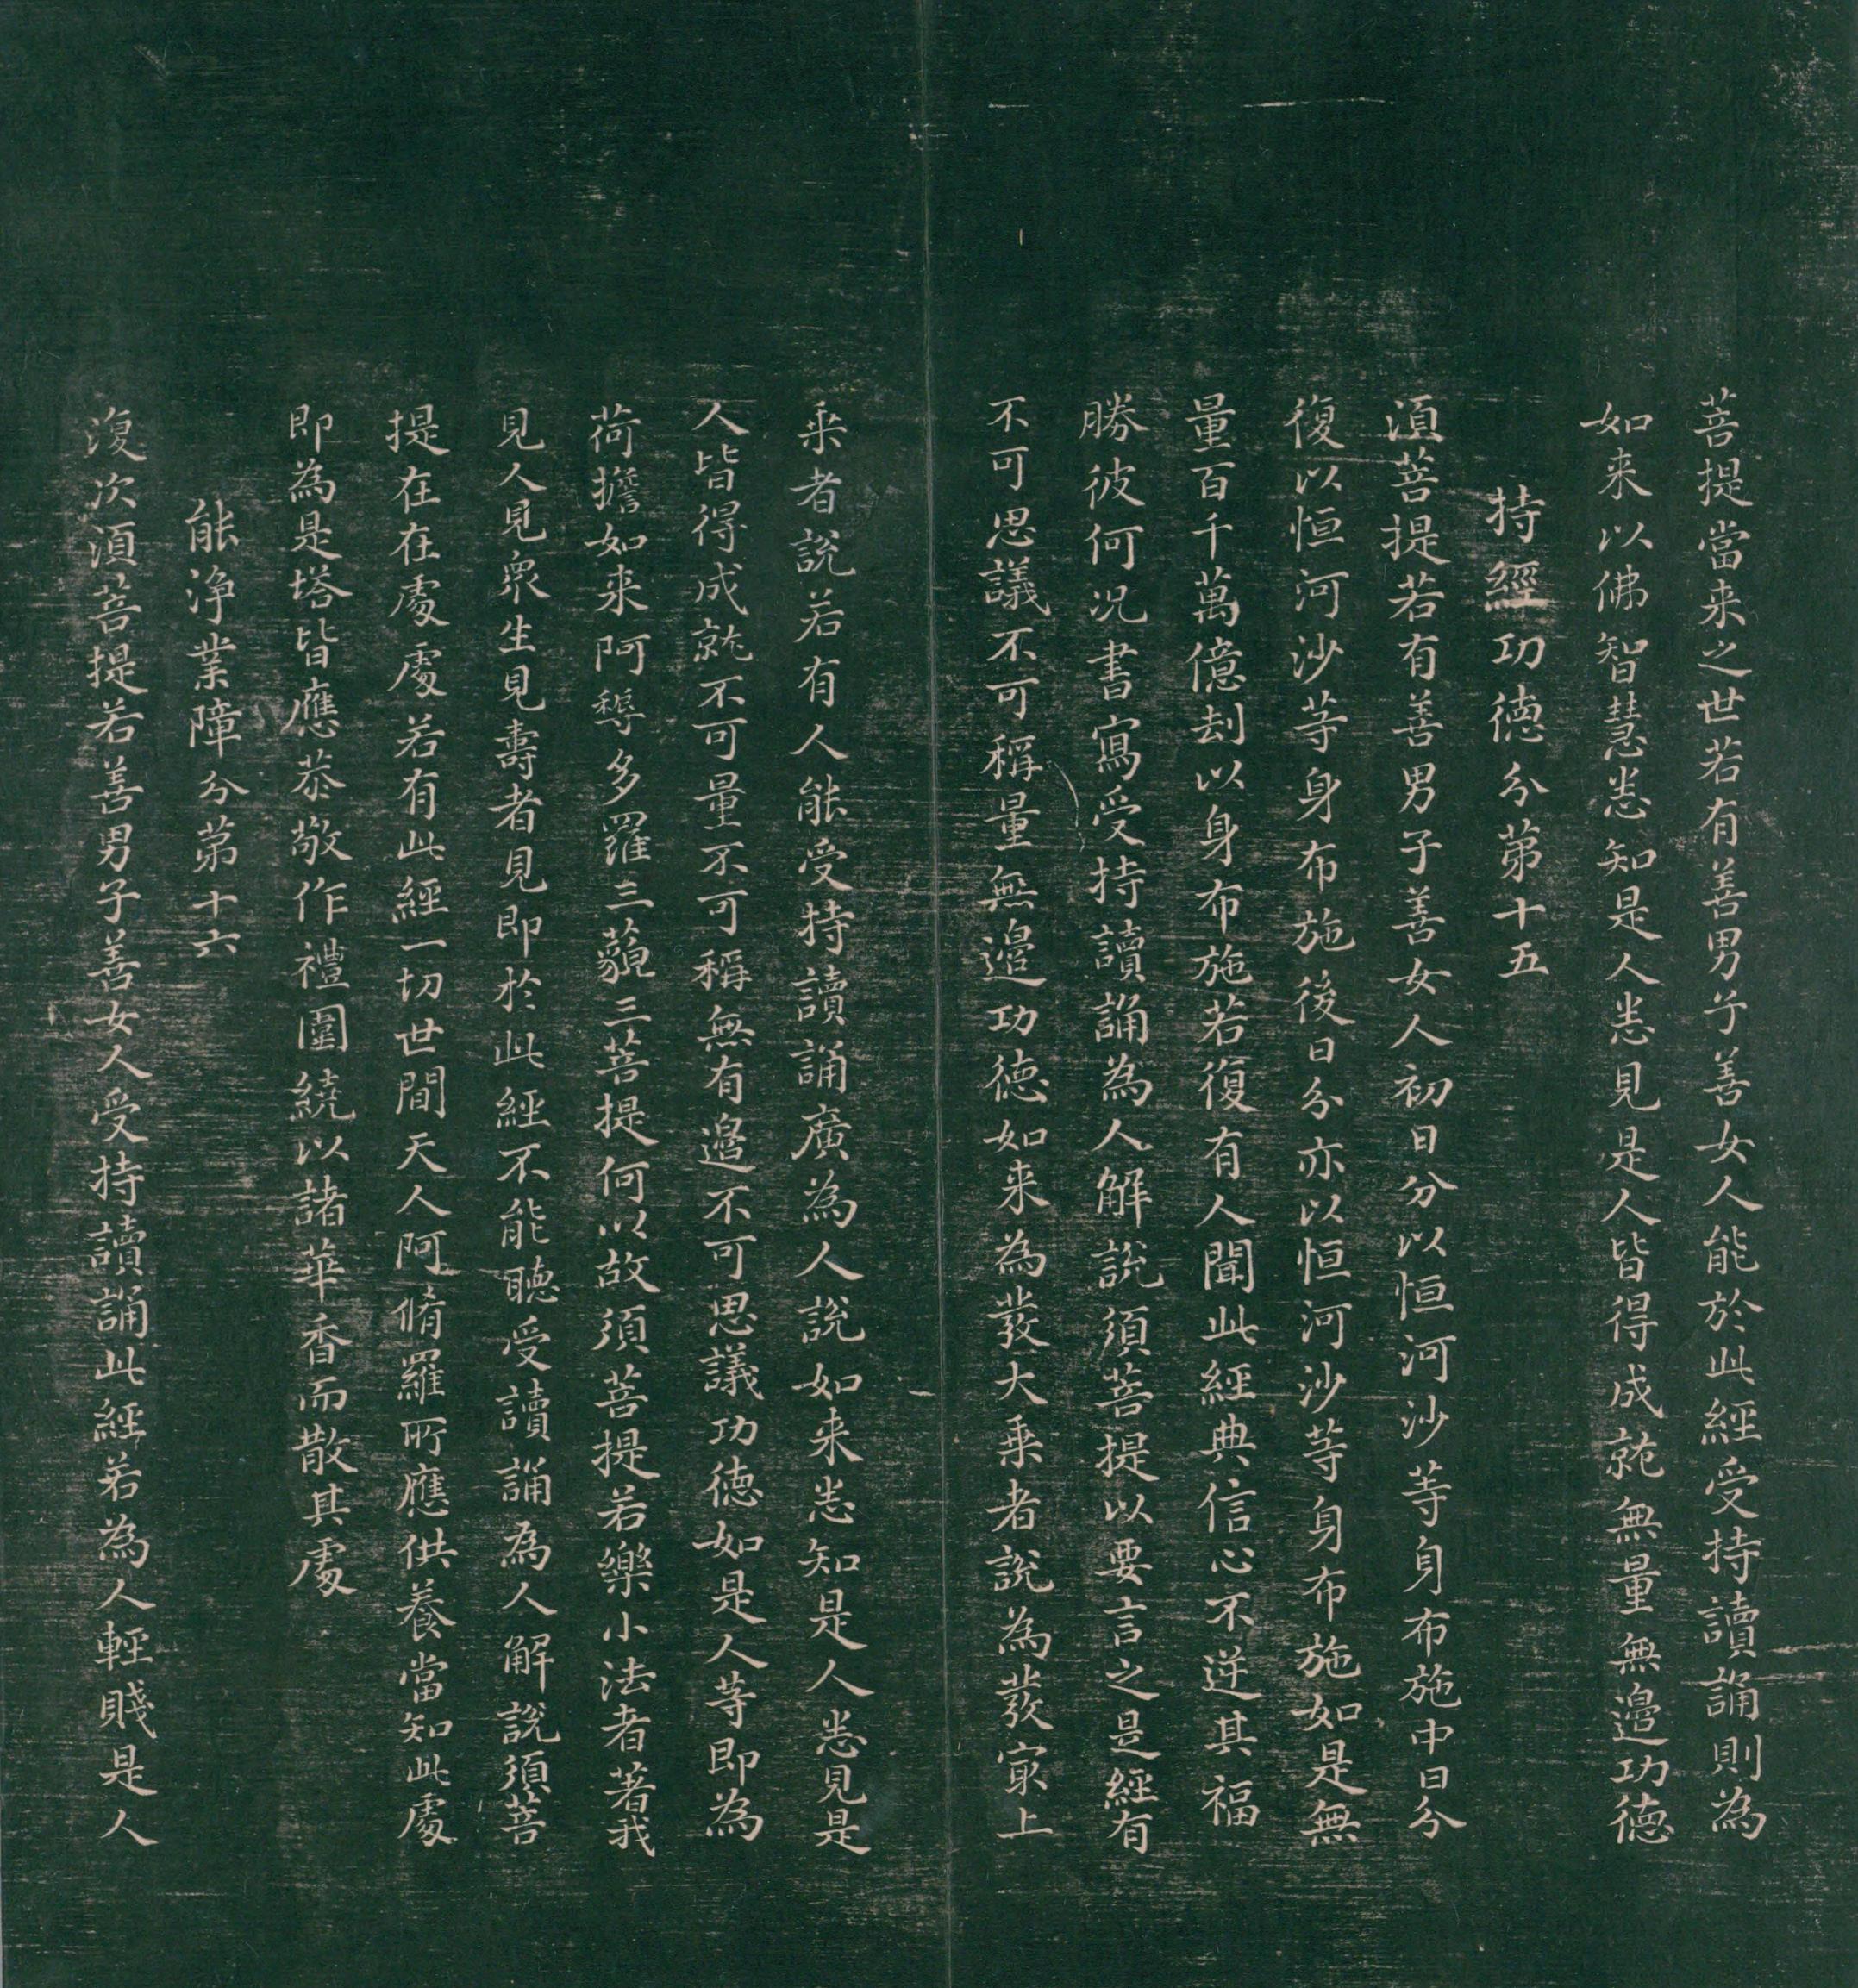 菩提當来之世若有善男子善女人能於此經受持讀誦則為
如来以佛智慧悉知是人悉見是人皆得成就無量無邊功德
持經功德分第十五
須菩提若有善男子善女人初日分以恒河沙等身布施中日分
復以恒河沙等身布施後日分亦以恒河沙等身布施如是無
量百千萬億刦以身布施若復有人聞此經典信心不逆其福
勝彼何况書寫受持讀誦為人解說須菩提以要言之是經有
不可思議不可稱量無邊功德如来為發大乗者說為發冣上
乗者說若有人能受持讀誦廣為人說如来悉知是人悉見是
人皆得成就不可量不可稱無有邊不可思議功德如是人等即為
荷擔如来阿耨多羅三藐三菩提何以故須菩提若樂小法者著我
見人見衆生見壽者見即於此經不能聽受讀誦為人解說須菩
提在在處處若有此經一切世間天人阿脩羅所應供養當知此處
即為是塔皆應恭敬作禮圍繞以諸華香而散其處
能淨業障分第十六
復次須菩提若善男子善女人受持讀誦此經若為人輕賤是人